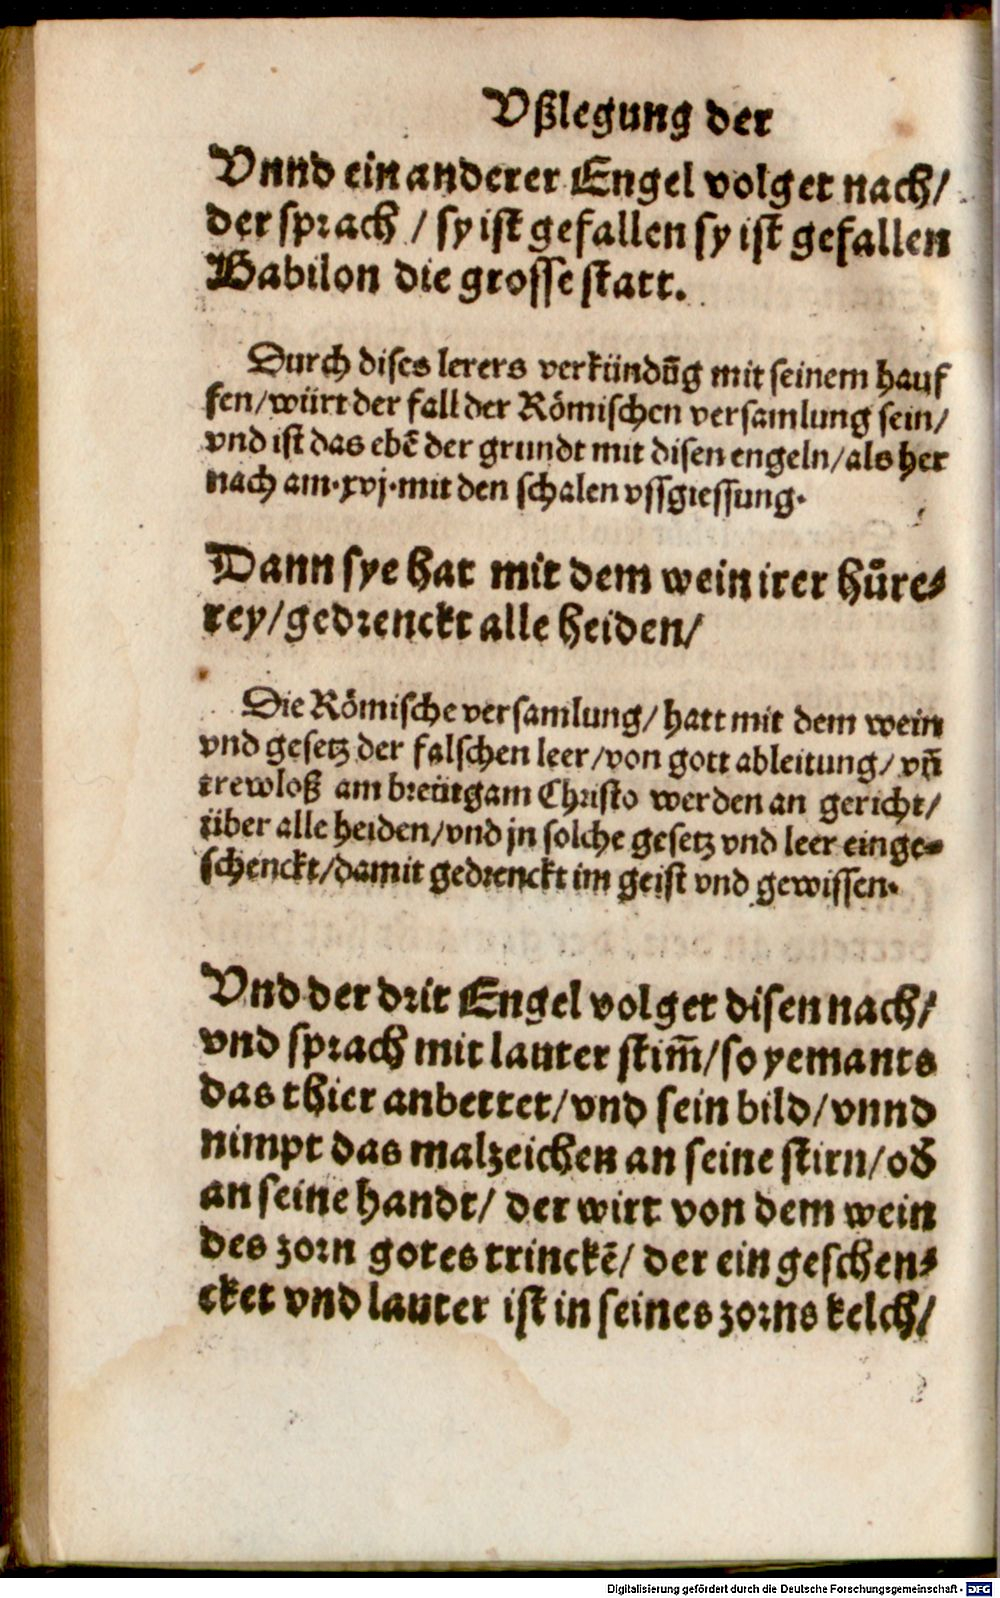 Vßlegung der
Vnnd ein anderer Engel volget nach/
der sprach / sy ist gefallen sy ist gefallen
Babilon die grosse statt.
Durch dises lerers verkündūg mit seinem hauf
fen/würt der fall der Römischen versamlung sein/
vnd ist das ebē der grundt mit disen engeln/als her
nach am·xvj·mit den schalen vssgiessung·
Dann sye hat mit dem wein irer hůre⸗
rey/gedrenckt alle heiden/
Die Römische versamlung/ hatt mit dem wein
vnd gesetz der falschen leer/von gott ableitung/ vñ
trewloß am breütgam Christo werden an gericht/
über alle heiden/vnd jn solche gesetz vnd leer einge⸗
schenckt/damit gedrenckt im geist vnd gewissen·
Vnd der drit Engel volget disen nach/
vnd sprach mit lauter stim̄/so yemants
das thier anbettet/vnd sein bild/vnnd
nimpt das malzeichen an seine stirn/od̕
an seine handt/ der wirt von dem wein
des zorn gotes trinckē/ der ein geschen⸗
cket vnd lauter ist in seines zorns kelch/
Digitalisierung gefördert durch die Deutsche Forschungsgemeinschaft - DFG